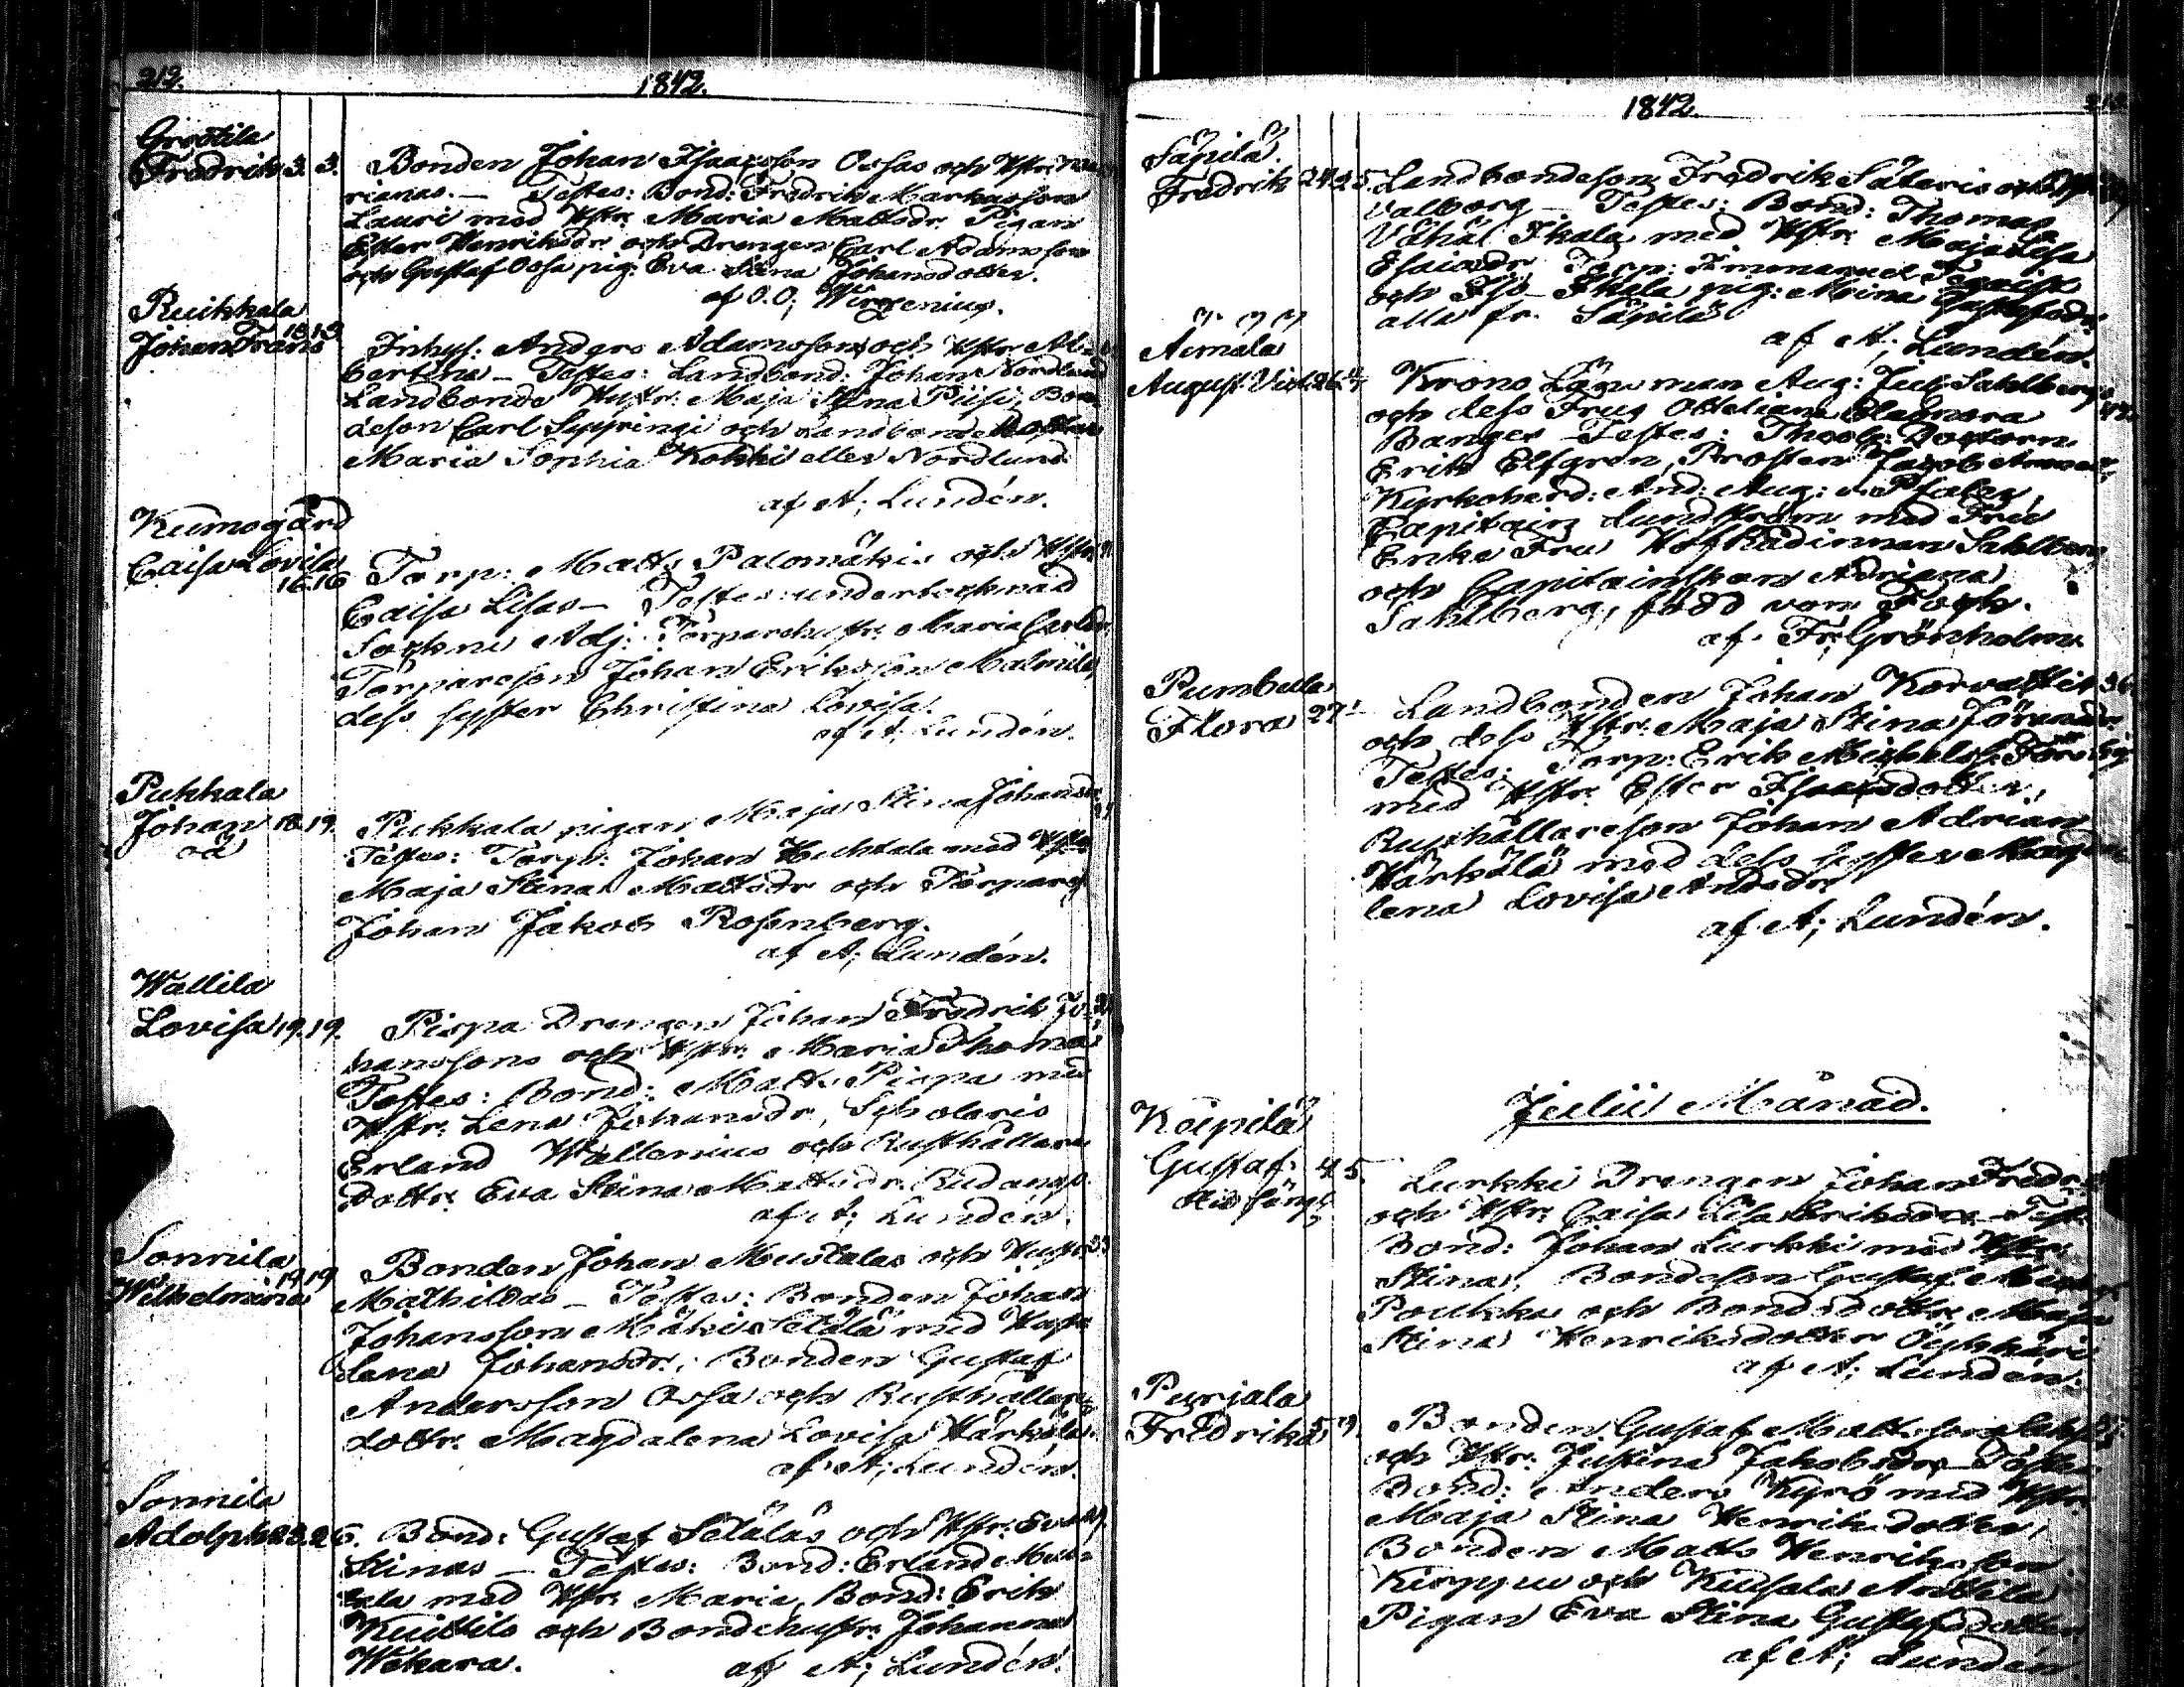 212.
1842.
Grootila
Fredrik 3. 3. Bonden Johan Isaaksson Ossas och Hstr: Ma
rianas. — Testes: Bond: Fredrik Markusson
Lauri med Hstr: Maria Mattsdr. Pigan
Ester Henriksdr. och Drengen Carl Adamsson
och Gustaf Ossa pig: Eva Stina Johansdotter.
af O. O; Wirzenius.
Ruikkala
Johan Frans 18.19 Inhys: Anders Adamsson och Hstr Al-
bertina — Testes: Landbond: Johan Nordlund
Landbonde Hustr: Maja Stina Piisi, Bon-
deson Carl Seppringi och Landbonde
Maria Sophia Kokki eller Nordlund
af A; Lundén.
Kumogård
Caisa Lovisa
16.16 Torp: Matts Palomäkis och Hstr:
Caisa Lisas — Testes: undertecknad
Sockne Adj: Torparehustr: Maria Carlsdr
Torpareson Johan Eriksson Malmila
dess syster Christina Lovisa.
af A; Lundén.
Pukkala
Johan 18.19. Pukkala pigan Maja Stina Johansdr
oä Testes: Torp: Johan Huhtala med Hstr
Maja Stina Mattsdr och Torpare
Johan Jakob Rosenberg.
af A; Lundén.
Wallila
Lovisa 19.19. Pispa Drengen Johan Fredrik Jo-
hanssons och Hstr: Maria Thomas
Testes: Bond: Matts Pispa med
Hstr: Lena Johansdr, Scholaris
Erland Wallenius och Rusthållare
Dottr: Eva Stina Mattsdr. Rudanko.
af A; Lundén.
Sonnila
Wilhelmina 19.19 Bonden Johan Mustalas och Hustr:
Mathildas — Testes: Bonden Johan
Johansson Mäki Setälä med Hustr
Lena Johansdr., Bonden Gustaf
Andersson Ossa och Rusthållare
dottr: Magdalena Lovisa Härkälä.
af A; Lundén.
Sonnila
Adolph 23.26. Bond: Gustaf Setäläs och Hstr: Eva
Stinas — Testes: Bond: Erland Mus-
tala med Hstr: Maria, Bond: Erik
Kuittilo och Bondehustr: Johanna
Wäkara. af A; Lundén.
1842.
213.
Säpilä.
Fredrik 24.25. Landbondeson Fredrik Sätaris och Hstr
Valborg — Testes: Bond: Thomas
Vähä Ikala med Hstr: Maja Lisa
Esaiadr, Torp: Immanuel
och Iso-Ikala pig: Mina Gustafsdr
alla fr. Säpilä
af A; Lundén.
Äimälä
August Vict. Krono Länsman Aug: Jul: Sahlbergs
och dess Frus Otteliana Eleonora
Banges — Testes: Theolg: Doctorn
Erik Elfgren, Prosten Jacob
Kyrkoherd: And: Aug:
Capitain Lundström med Fru
Enke Fru Hof Rådinnan Sahlberg
och Capitainskan Adriana
Sahlberg, född von Foch.
af Fr: Grönholm.
Pumbulla
Flora 27. Landbonden Johan Korvattis
och dess Hstr: Maja Stina Göransdr
Testes: Torp: Erik Michelss: Törö
med Hstr: Ester Isaaksdotter,
Rusthållareson Johan Adrian
Härkälä med dess syster Magda-
lena Lovisa Andsdr
af A; Lundén.
Julii Månad.
Käpilä
Gustaf 4.5. Lurkki Drengen Johan Fredr
och Hstr: Caisa Lisa Eriksdrs — Test:
Bond: Johan Lurkki med Hstr:
Stina, Bondeson Gustaf
Poukka och Bondedottr: Maja
Stina Henriksdotter Öykkäri
af A; Lundén.
Purjala
Fredrika 5. Bonden Gustaf Mattsson
och Hstr: Justina Jakobsdrs — Testes:
Bond: Anders Kyrö med Hstr:
Maja Stina Henriksdotter,
Bonden Matts Henriksson
Kirppu och Kuusala Anttila
Pigan Eva Stina Gustafsdotter
af A; Lundén.